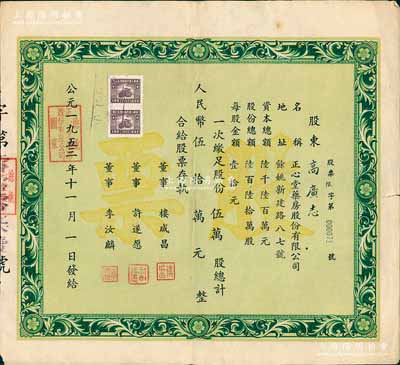 股票隆字第 000071 號
股東 高廣志
名稱 正心堂藥房股份有限公司
地址 餘姚新建路八七號
資本總額 陸千陸百萬元
股份總額 陸百陸拾萬股
每股金額 壹拾元
一次繳足股份 伍萬 股總計
人民幣 伍拾萬 元 整
合給股票存執
董事 樓成昌
董事 許遂恩
董事 李汝麟
公元一九五三年十一月一日發給
股票
字第
號